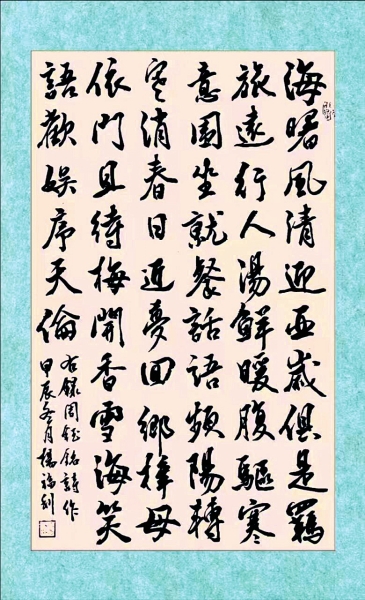 海曙風清迎亞歲俱是羈
旅遠行人湯鮮暖腹驅寒
意圍坐就餐話語頻陽轉
寒消春日近夢回鄉梓母
依門且待梅開香雪海笑
語歡娛序天倫
右錄周鈺銘詩作
甲辰冬月楊福